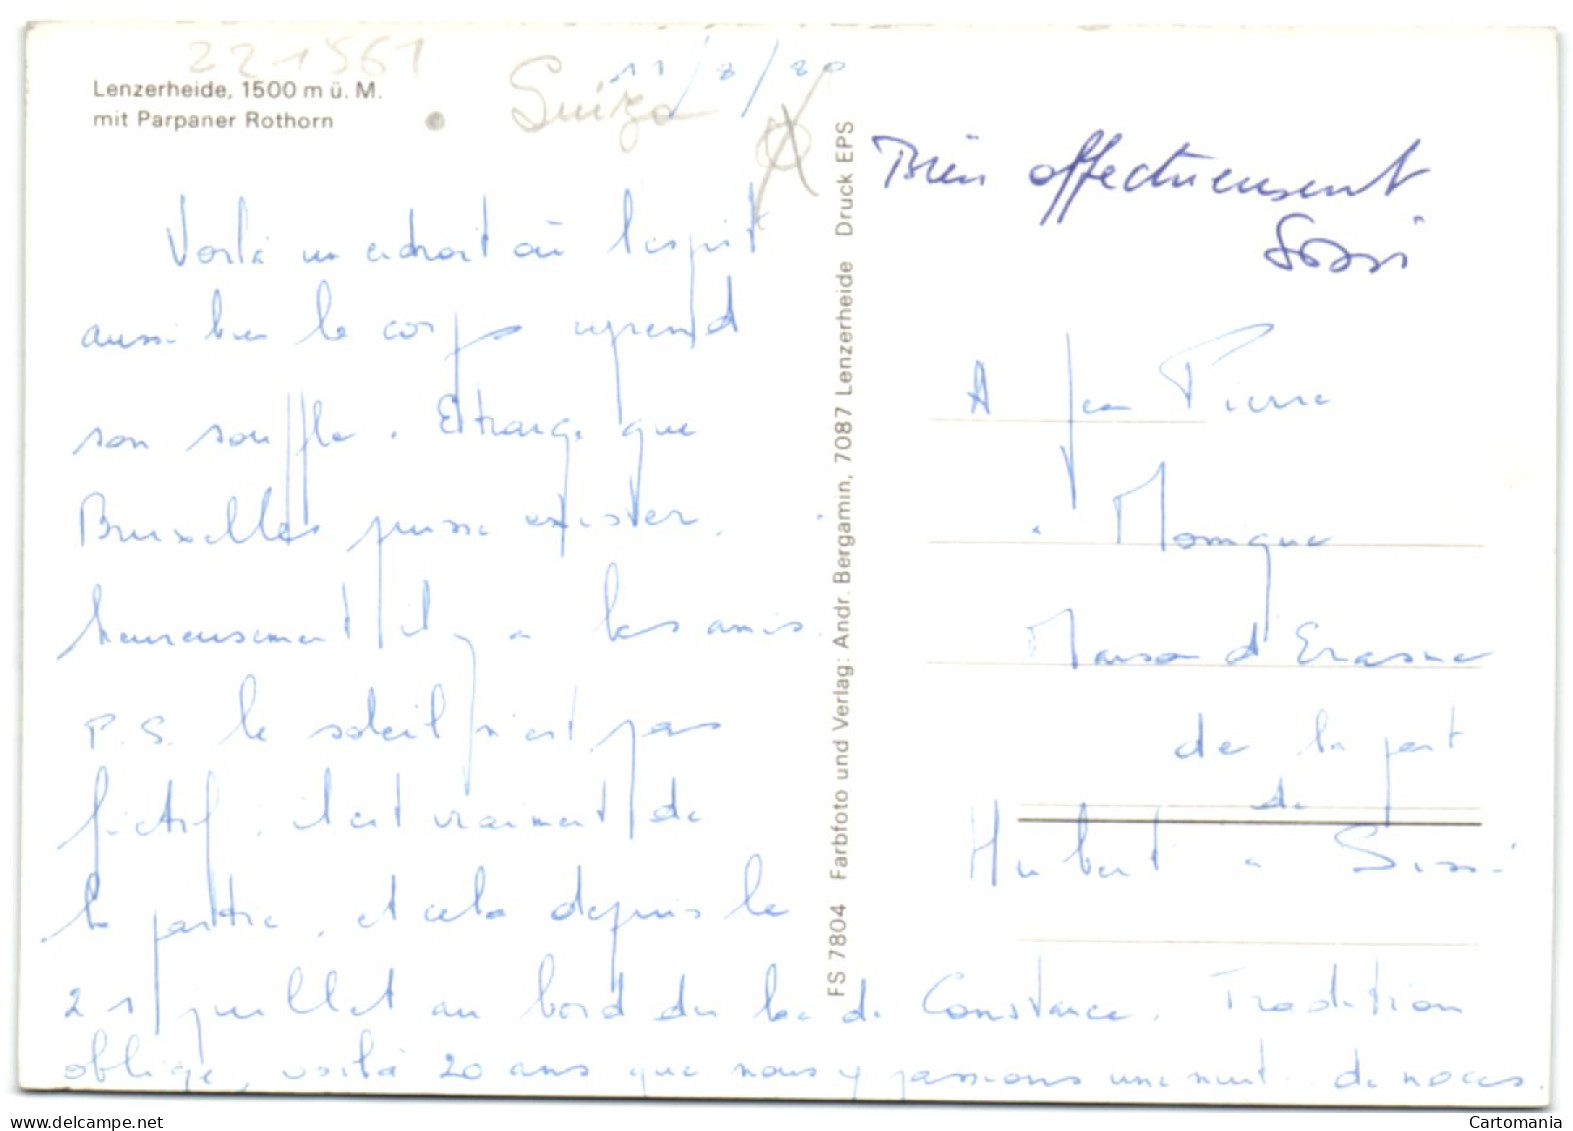 221561
Lenzerheide, 1500 m ü. M.
mit Parpaner Rothorn
Suiza
11/8/80
Voilà un endroit où l'esprit
aussi bien le corps reprend
son souffle. Etrange que
Bruxelles puisse exister.
heureusement il y a les amis.
P.S. le soleil n'est pas
fictif. il est vraiment de
la partie, et cela depuis le
21 juillet au bord du lac de Constance. Tradition
oblige, voilà 20 ans que nous y passions une nuit de noces.
FS 7804 Farbfoto und Verlag: Andr. Bergamin, 7087 Lenzerheide Druck EPS
Bien affectueusement
Sissi
A Jean Pierre
à Monique
Maison d'Erasme
de la part
de
Hubert à Sissi
Cartomania